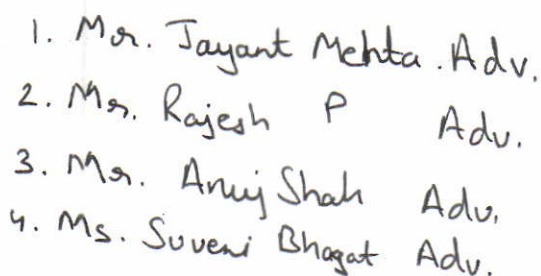 1. Mr. Jayant Mehta. Adv.
2. Mr. Rajesh P Adv.
3. Mr. Anuj Shah Adv.
4. Ms. Suveni Bhagat Adv.